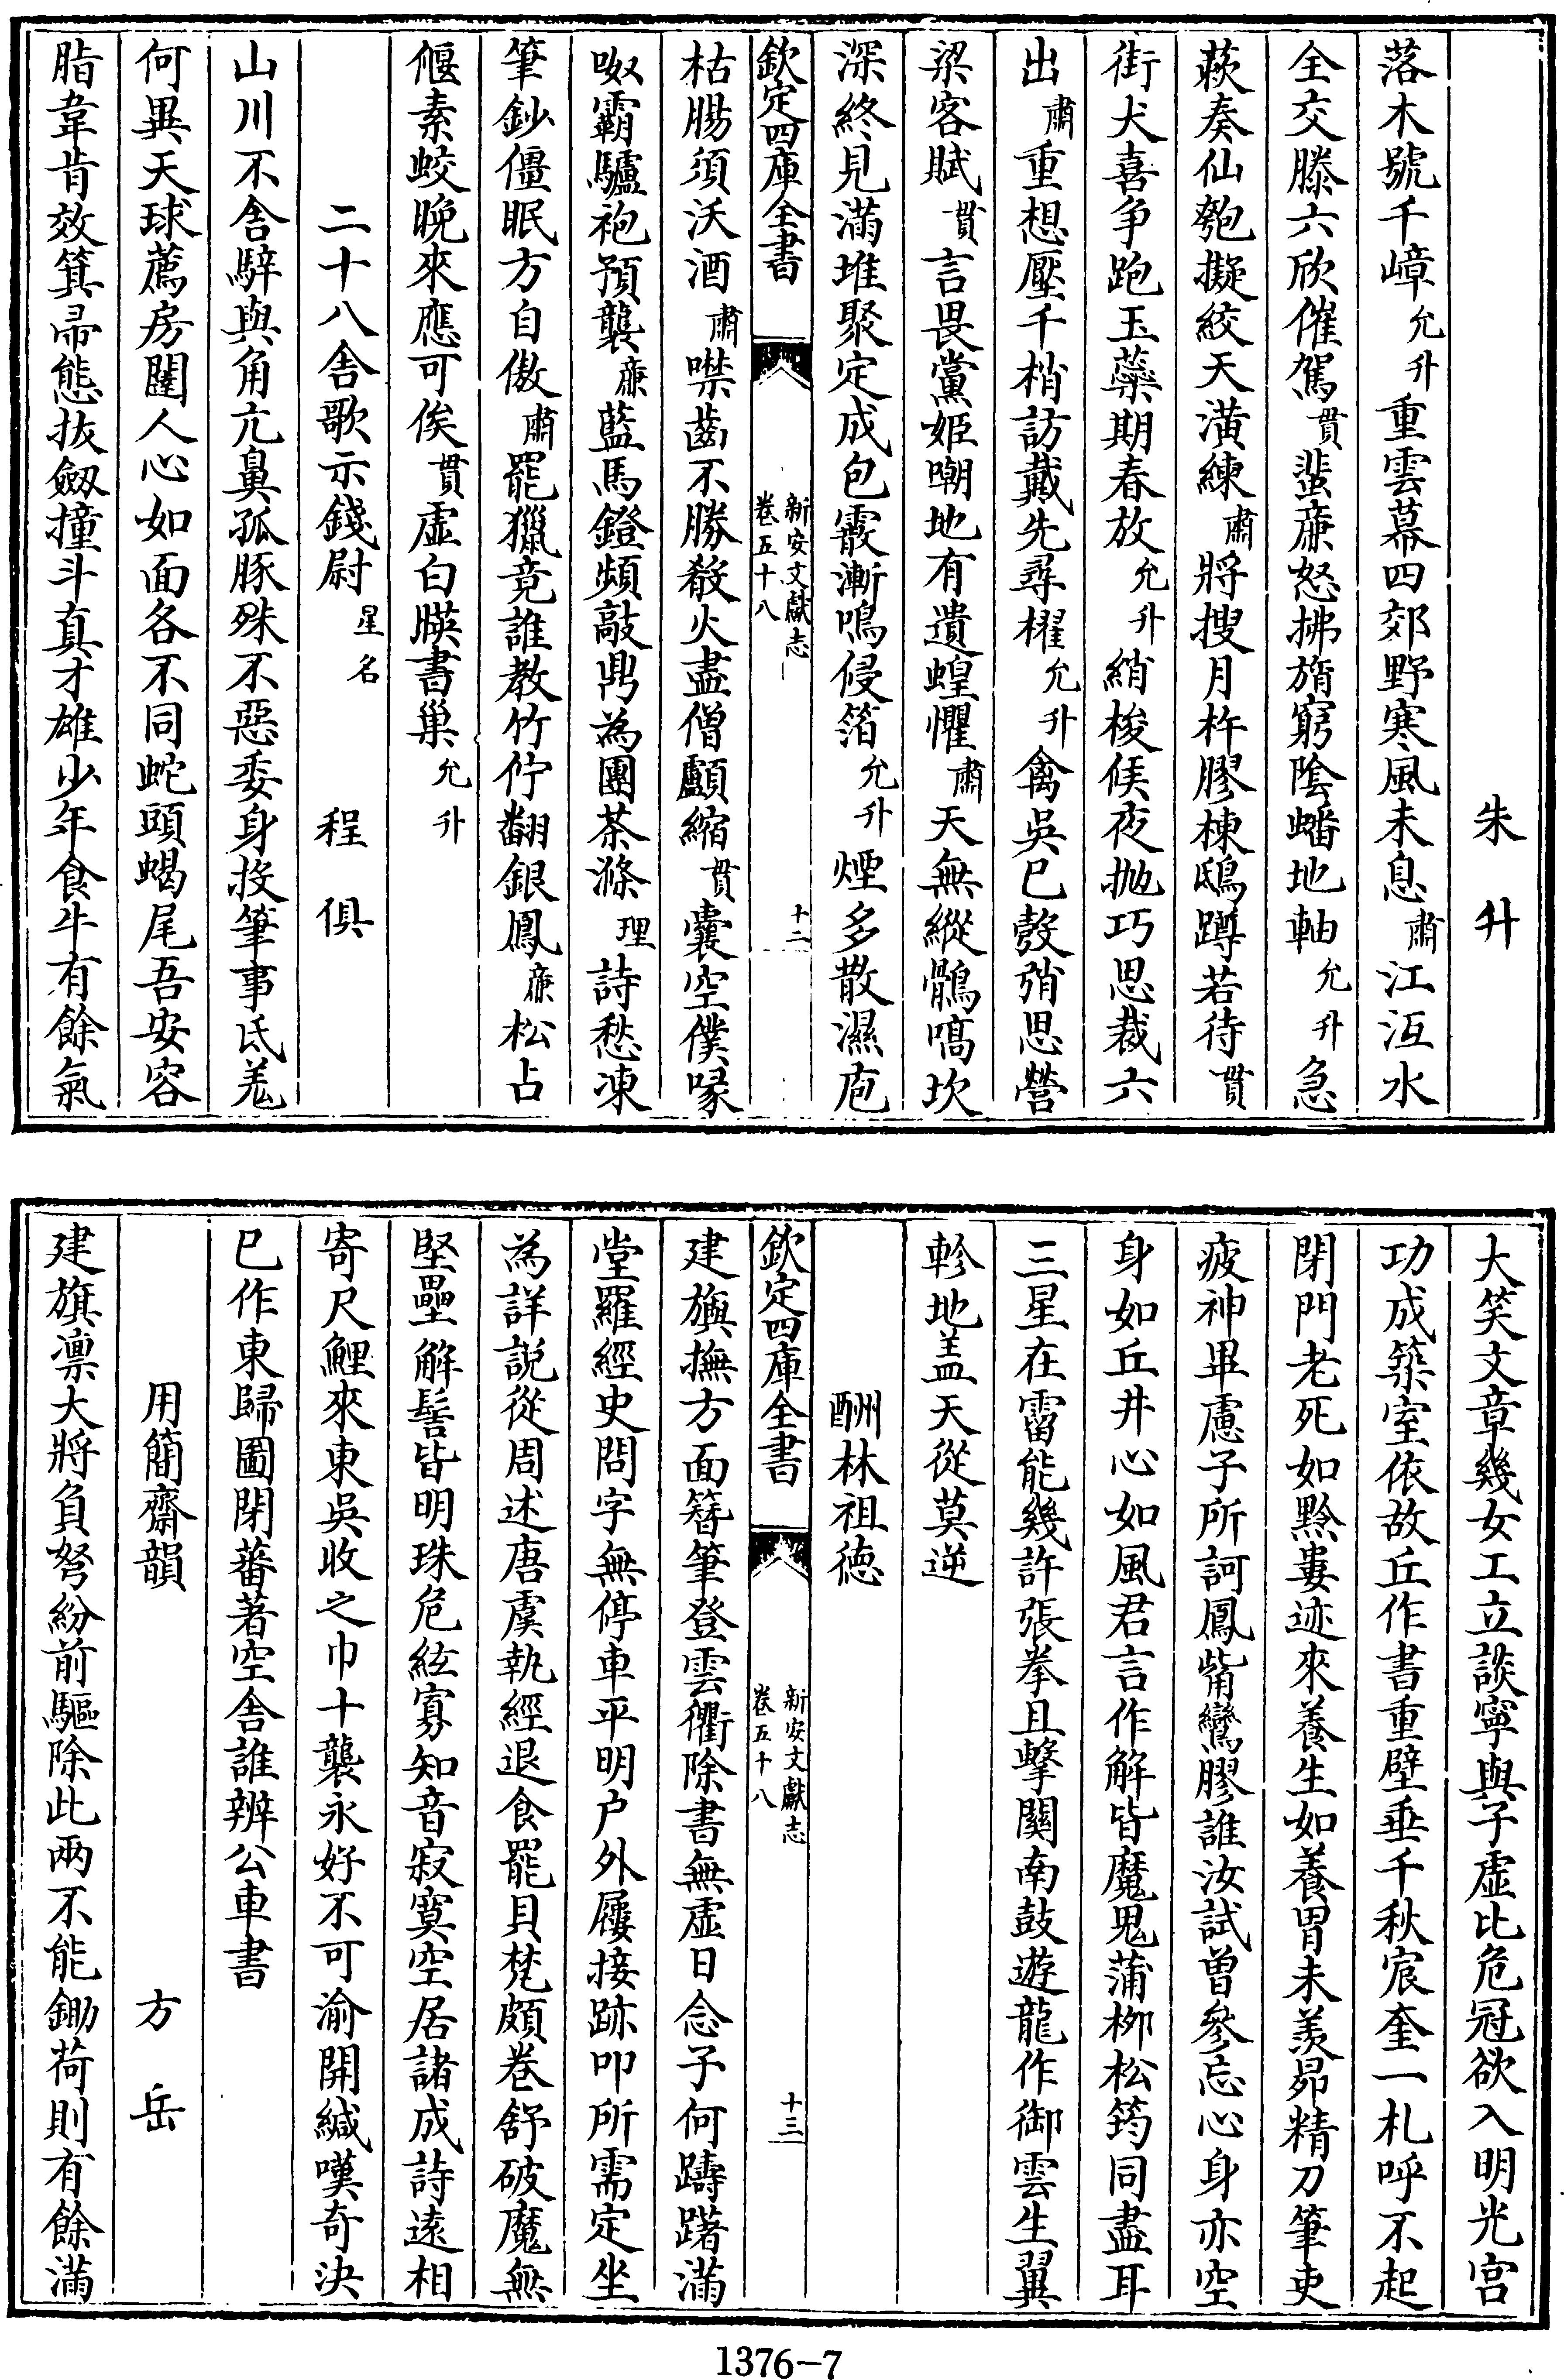 朱升
落木號千嶂允升重雲幕四郊野寒風未息肅江沍水
全交滕六欣催駕貫蜚廉怒拂旓窮陰蟠地軸允升急
蔌奏仙匏擬絞天潢練肅將搜月杵膠棟鴟蹲若待貫
街犬喜争跑玉蘂期春放允升綃梭候夜抛巧思裁六
出肅重想壓千梢訪戴先尋櫂允升禽吳已彀弰思營
梁客賦貫言畏黨姬嘲地有遺蝗懼肅天無縱鶻嗃坎
深終見滿堆聚定成包霰漸鳴侵箔允升煙多散濕庖
欽定四庫全書
新安文獻志
卷五十八
十二
枯腸須沃酒肅噤齒不勝殽火盡僧顱縮貫囊空僕喙
呶霸驢袍預襲廉藍馬鐙頻敲鼎為團茶滌理詩愁凍
筆鈔僵眠方自傲肅罷獵竟誰教竹佇翻銀鳳廉松占
偃素蛟晚來應可俟貫虚白暎書巢允升
二十八舍歌示錢尉星名程俱
山川不舍騂與角亢鼻孤豚殊不惡委身投筆事氐羗
何異天球薦房闥人心如面各不同蛇頭蝎尾吾安容
脂韋肯效箕帚態拔劔撞斗真才雄少年食牛有餘氣
大笑文章幾女工立談寧與子虚比危冠欲入明光宫
功成築室依故丘作書重壁垂千秋宸奎一札呼不起
閉門老死如黔婁迹來養生如養胃未羨昴精刀筆吏
疲神畢慮子所訶鳳觜鸞膠誰汝試曽參忘心身亦空
身如丘井心如風君言作解皆魔鬼蒲栁松筠同盡耳
三星在霤能幾許張拳且擊關南鼓遊龍作御雲生翼
軫地盖天從莫逆
酬林祖徳
欽定四庫全書
新安文獻志
卷五十八
十三
建旟撫方面簪筆登雲衢除書無虚日念子何躊躇滿
堂羅經史問字無停車平明户外屨接跡叩所需定坐
為詳説從周述唐虞執經退食罷貝梵頗卷舒破魔無
堅壘解髻皆明珠危絃寡知音寂寞空居諸成詩逺相
寄尺鯉來東吳收之巾十襲永好不可渝開緘嘆奇決
已作東歸圖閉蕃著空舍誰辨公車書
用簡齋韻方岳
建旗凛大將負弩紛前驅除此兩不能鋤荷則有餘滿
1376-7